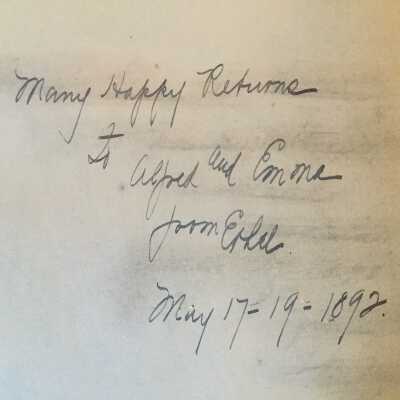 Many Happy Returns
To Alfred and Emma
from Ethel.
May 17-19-1892.